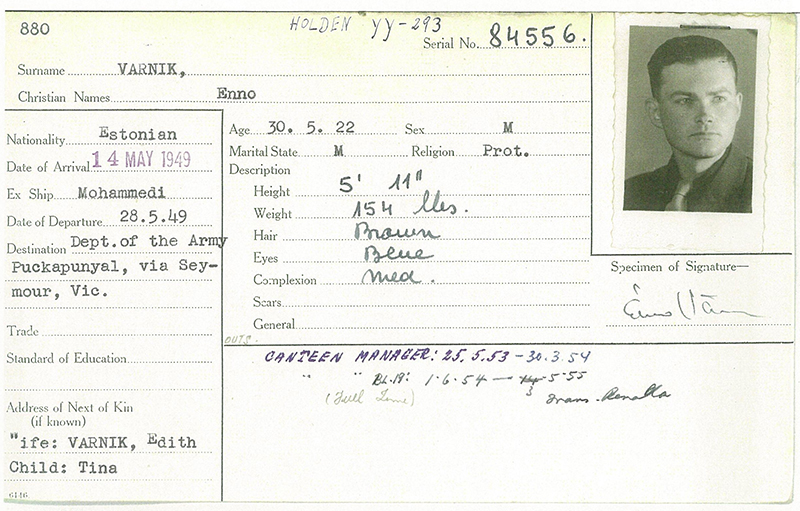 880
HOLDEN YY-293
Serial No. 84556.
Surname VARNIK,
Christian Names Enno
Nationality Estonian
Date of Arrival 14 MAY 1949
Ex Ship Mohammedi
Date of Departure 28.5.49
Destination Dept.of the Army
Puckapunyal, via Sey-
mour, Vic.
Trade
Standard of Education
Address of Next of Kin
(if known)
"ife: VARNIK, Edith
Child: Tina
6146
Age 30. 5. 22 Sex M
Marital State M Religion Prot.
Description
Height 5' 11"
Weight 154 lbs.
Hair Brown
Eyes Blue
Complexion Med.
Scars
General
OUTS.
CANTEEN MANAGER: 25.5.53 - 30.3.54
" " BL.19: 1.6.54 — 5.55
(Full Time) 3 Trans. Benalla
Specimen of Signature—
Enno Värn